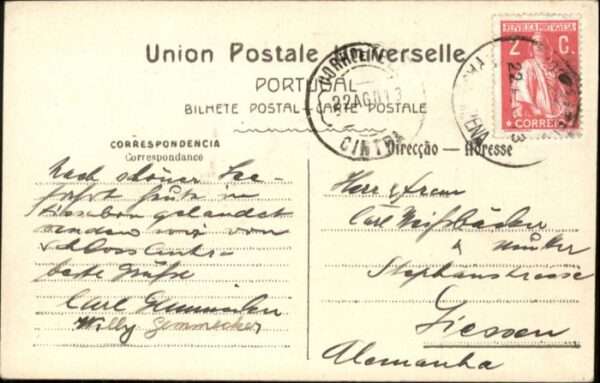 Union Postale Universelle
PORTUGAL
BILHETE POSTAL - CARTE POSTALE
2 C.
CORREIO
22 AGO 13
CINTRA
CORRESPONDENCIA
Correspondance
Direcção — Adresse
Nach schöner See-
fahrt in
Lissabon gelandet
senden wir vom
Schloss Cintra
beste Grüße
Carl
Willy Gemmecker
Herr & Frau
Carl
Stephanstrasse
Giessen
Alemanha